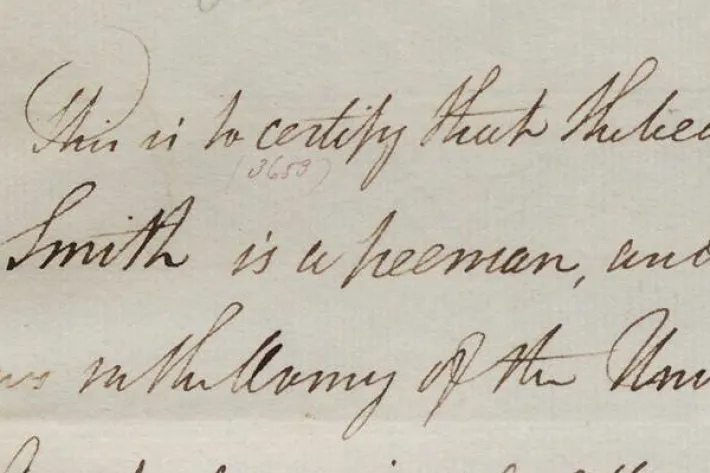 This is to certify that the bea
(3659)
Smith is a freeman, and
in the Army of the Uni